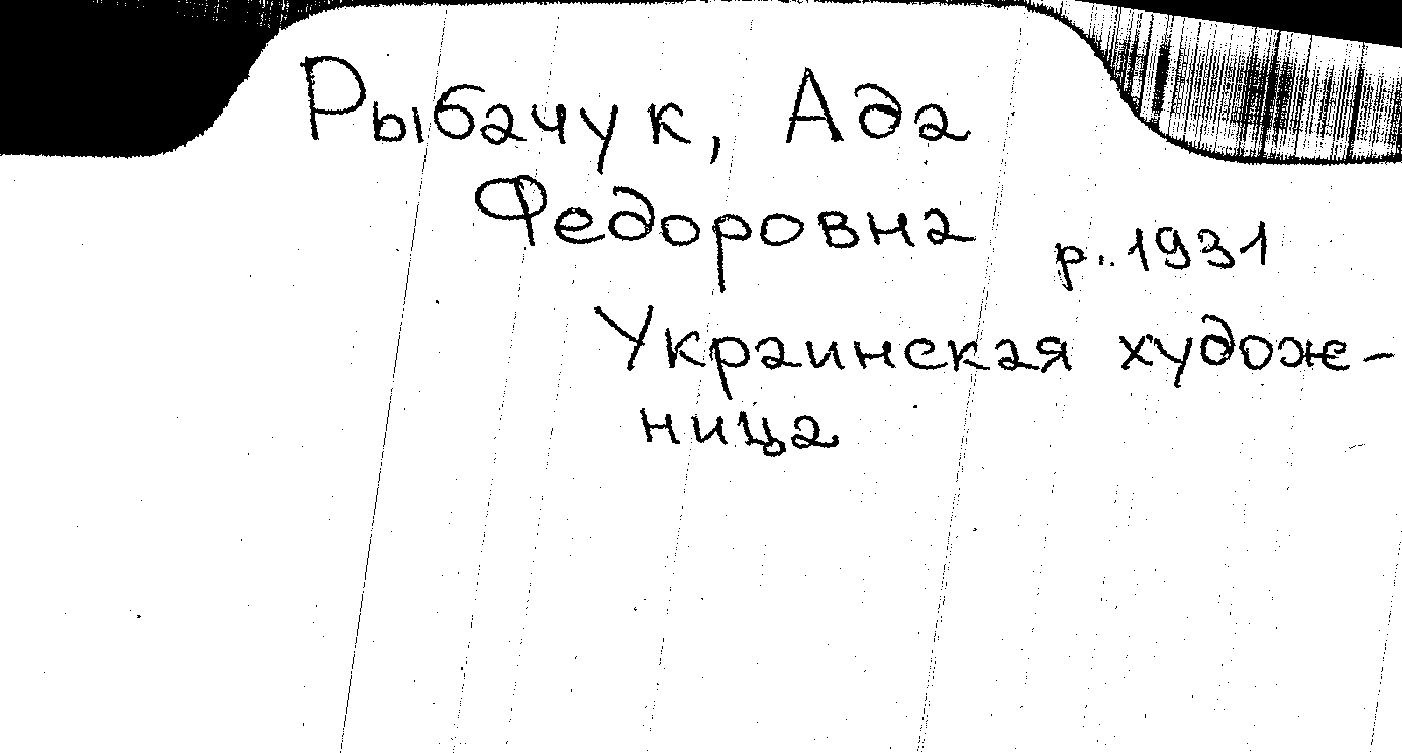 Рыбачук, Ада
Федоровна р. 1931
Украинская худож-
ница